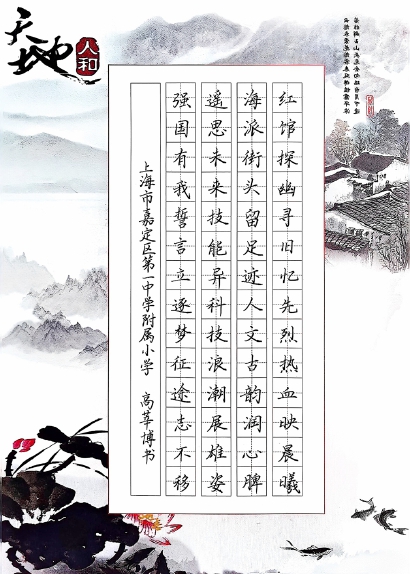 天地
人和
红馆探幽寻旧忆先烈热血映晨曦
海派街头留足迹人文古韵润心脾
遥思未来技能异科技浪潮展雄姿
强国有我誓言立逐梦征途志不移
上海市嘉定区第一中学附属小学 高莘博书